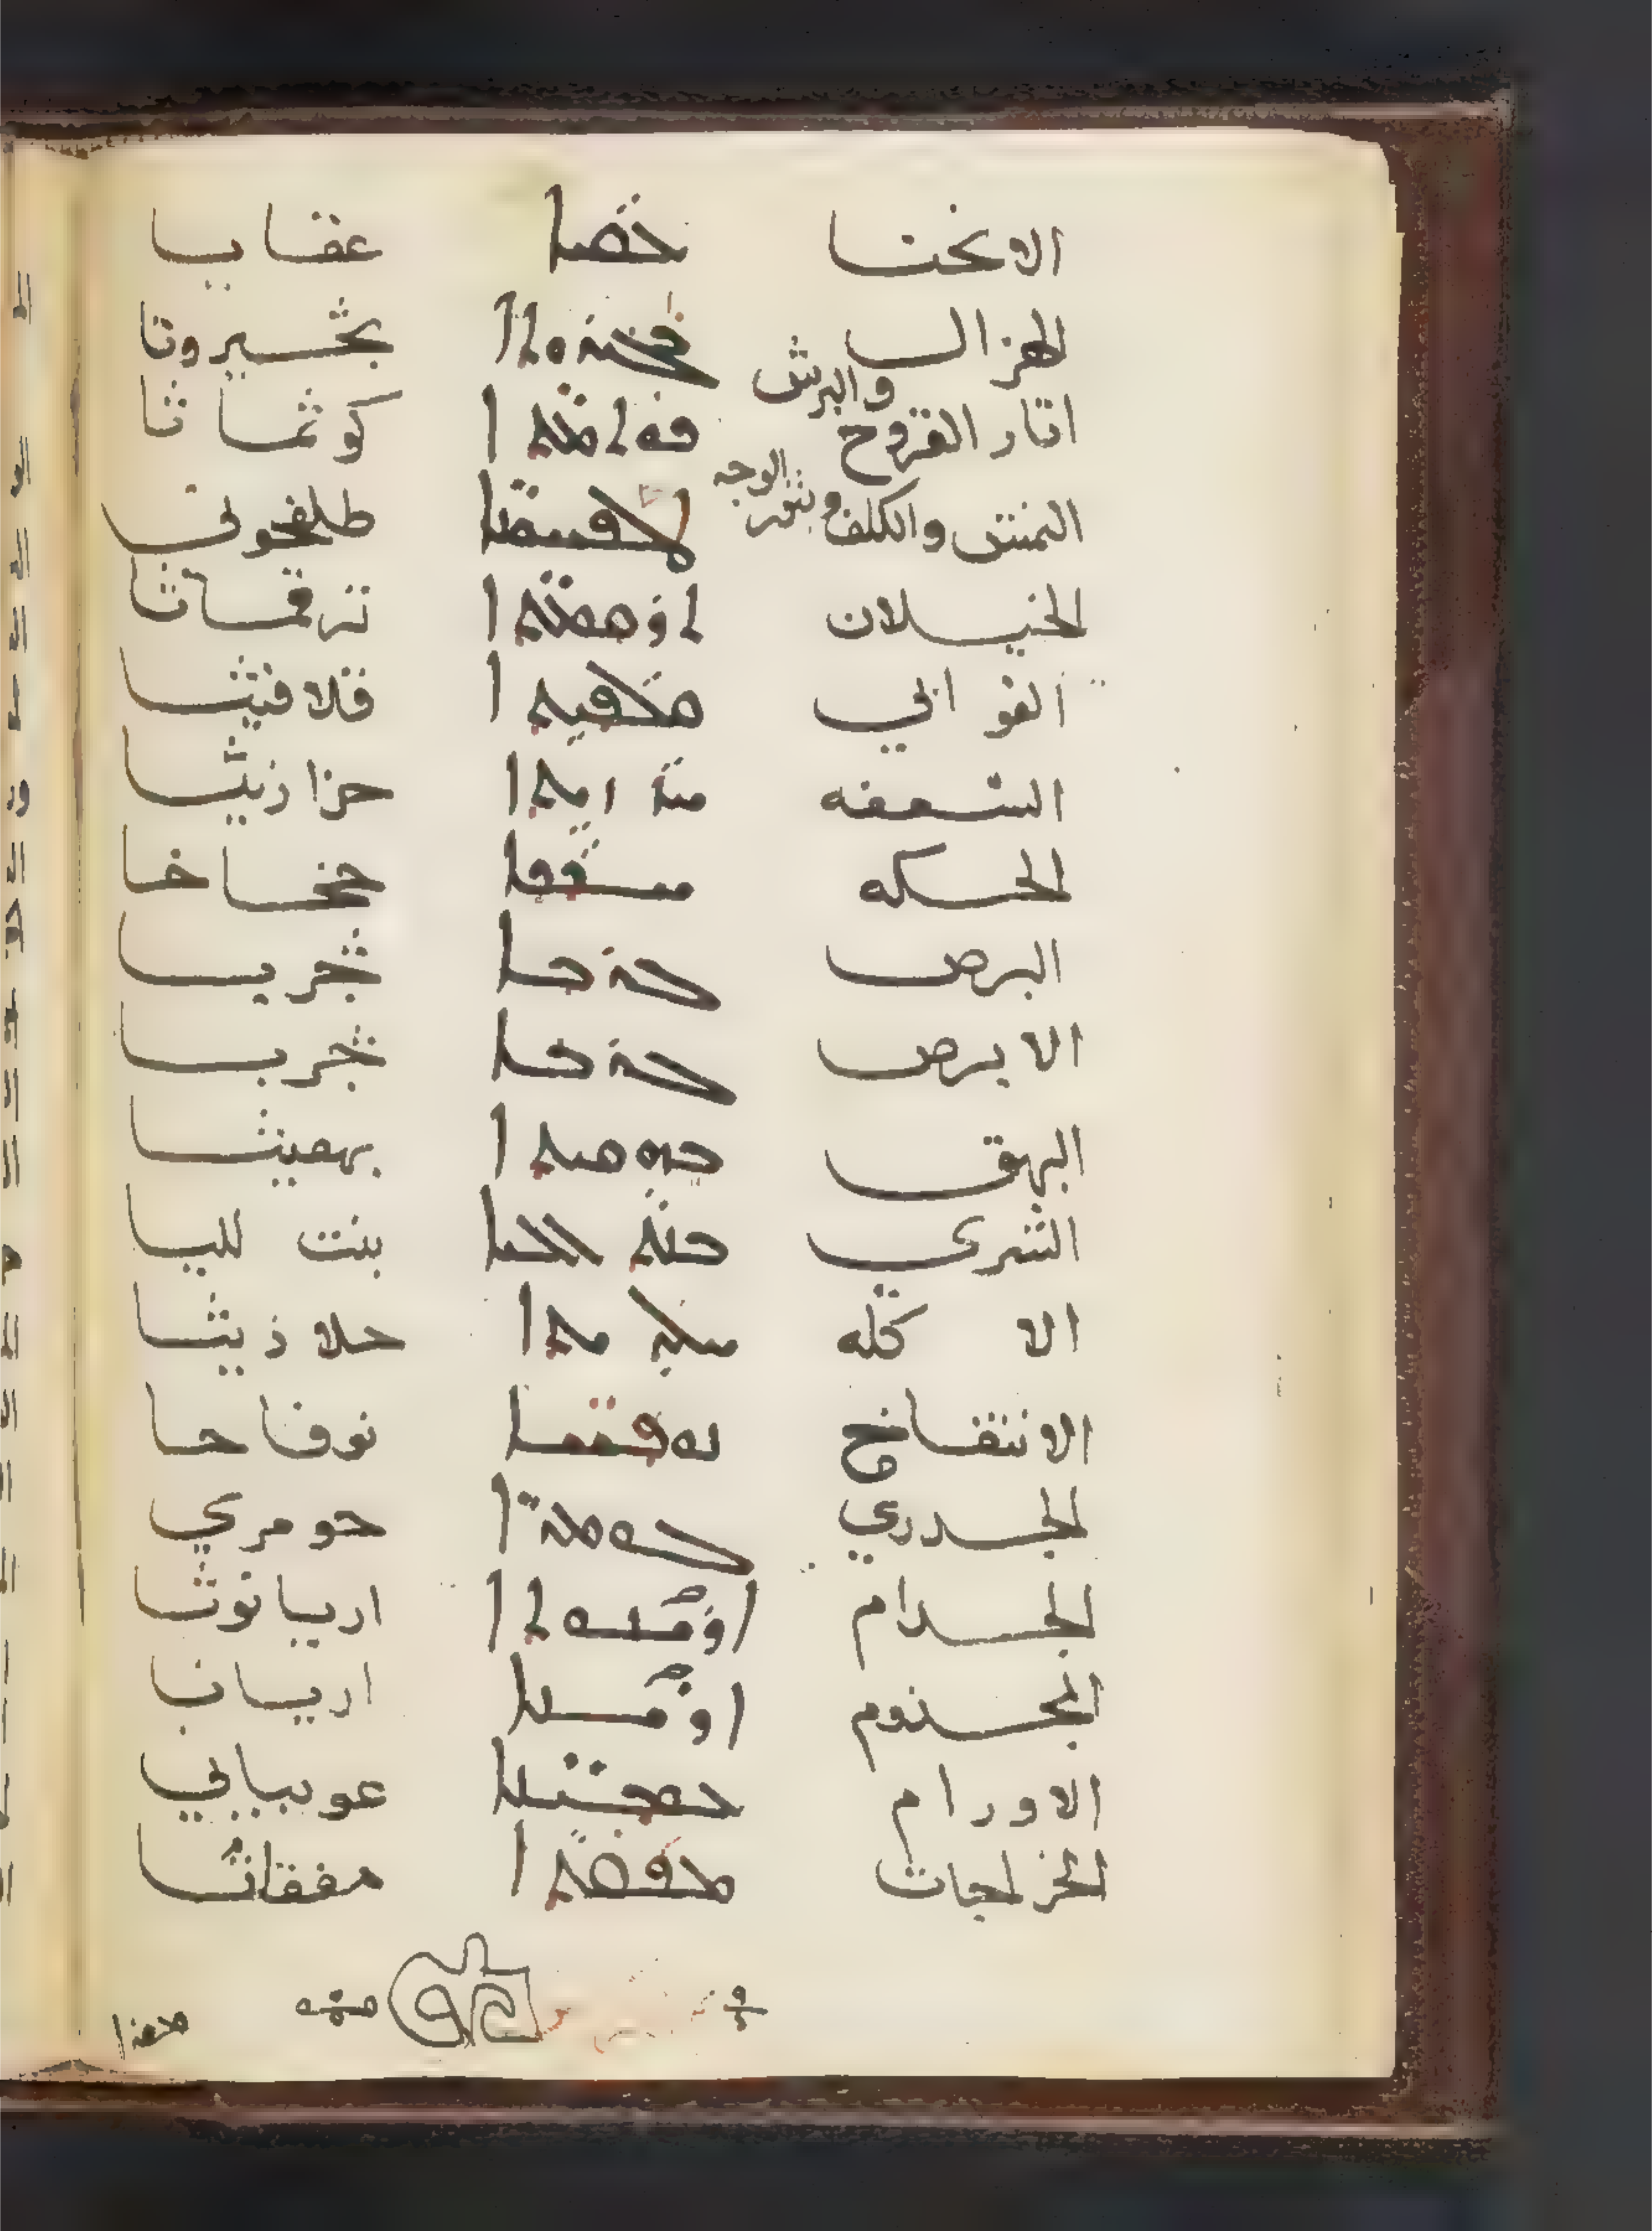 الانحنا ܥܩܡܐ عقابا
الهزال ܒܨܝܪܘܬܐ بخسيروتا
والبرش
اثار القروح ܟܘܬܡܬܐ كوثماثا
النمش والكلف وبثور الوجه ܛܠܦܚܐ طلفحوني
الخيلان ܬܪܩܡܬܐ ترقماثا
القوابي ܩܠܦܝܬܐ قلافيثا
السعفه ܚܙܙܝܬܐ حزازيثا
الحسكه ܚܟܟܐ خخاخا
البرص ܓܪܒܐ جربا
الابرص ܓܪܒܐ جربا
البهق ܒܗܩܝܬܐ بهقيثا
الشري ܒܢܬ ܠܠܝܐ بنت لليا
الاكله ܚܠܕܝܬܐ حلاذيثا
الانتفاخ ܢܘܦܚܐ نوفاحا
الجدري ܓܘܡܪܐ حومري
الجدام ܐܪܝܢܘܬܐ اريانوثا
المجذوم ܐܪܝܢܐ اريانا
الاورام ܥܘܒܝܢܐ عوبياني
الخراجات ܡܦܩܬܐ مفقاثا